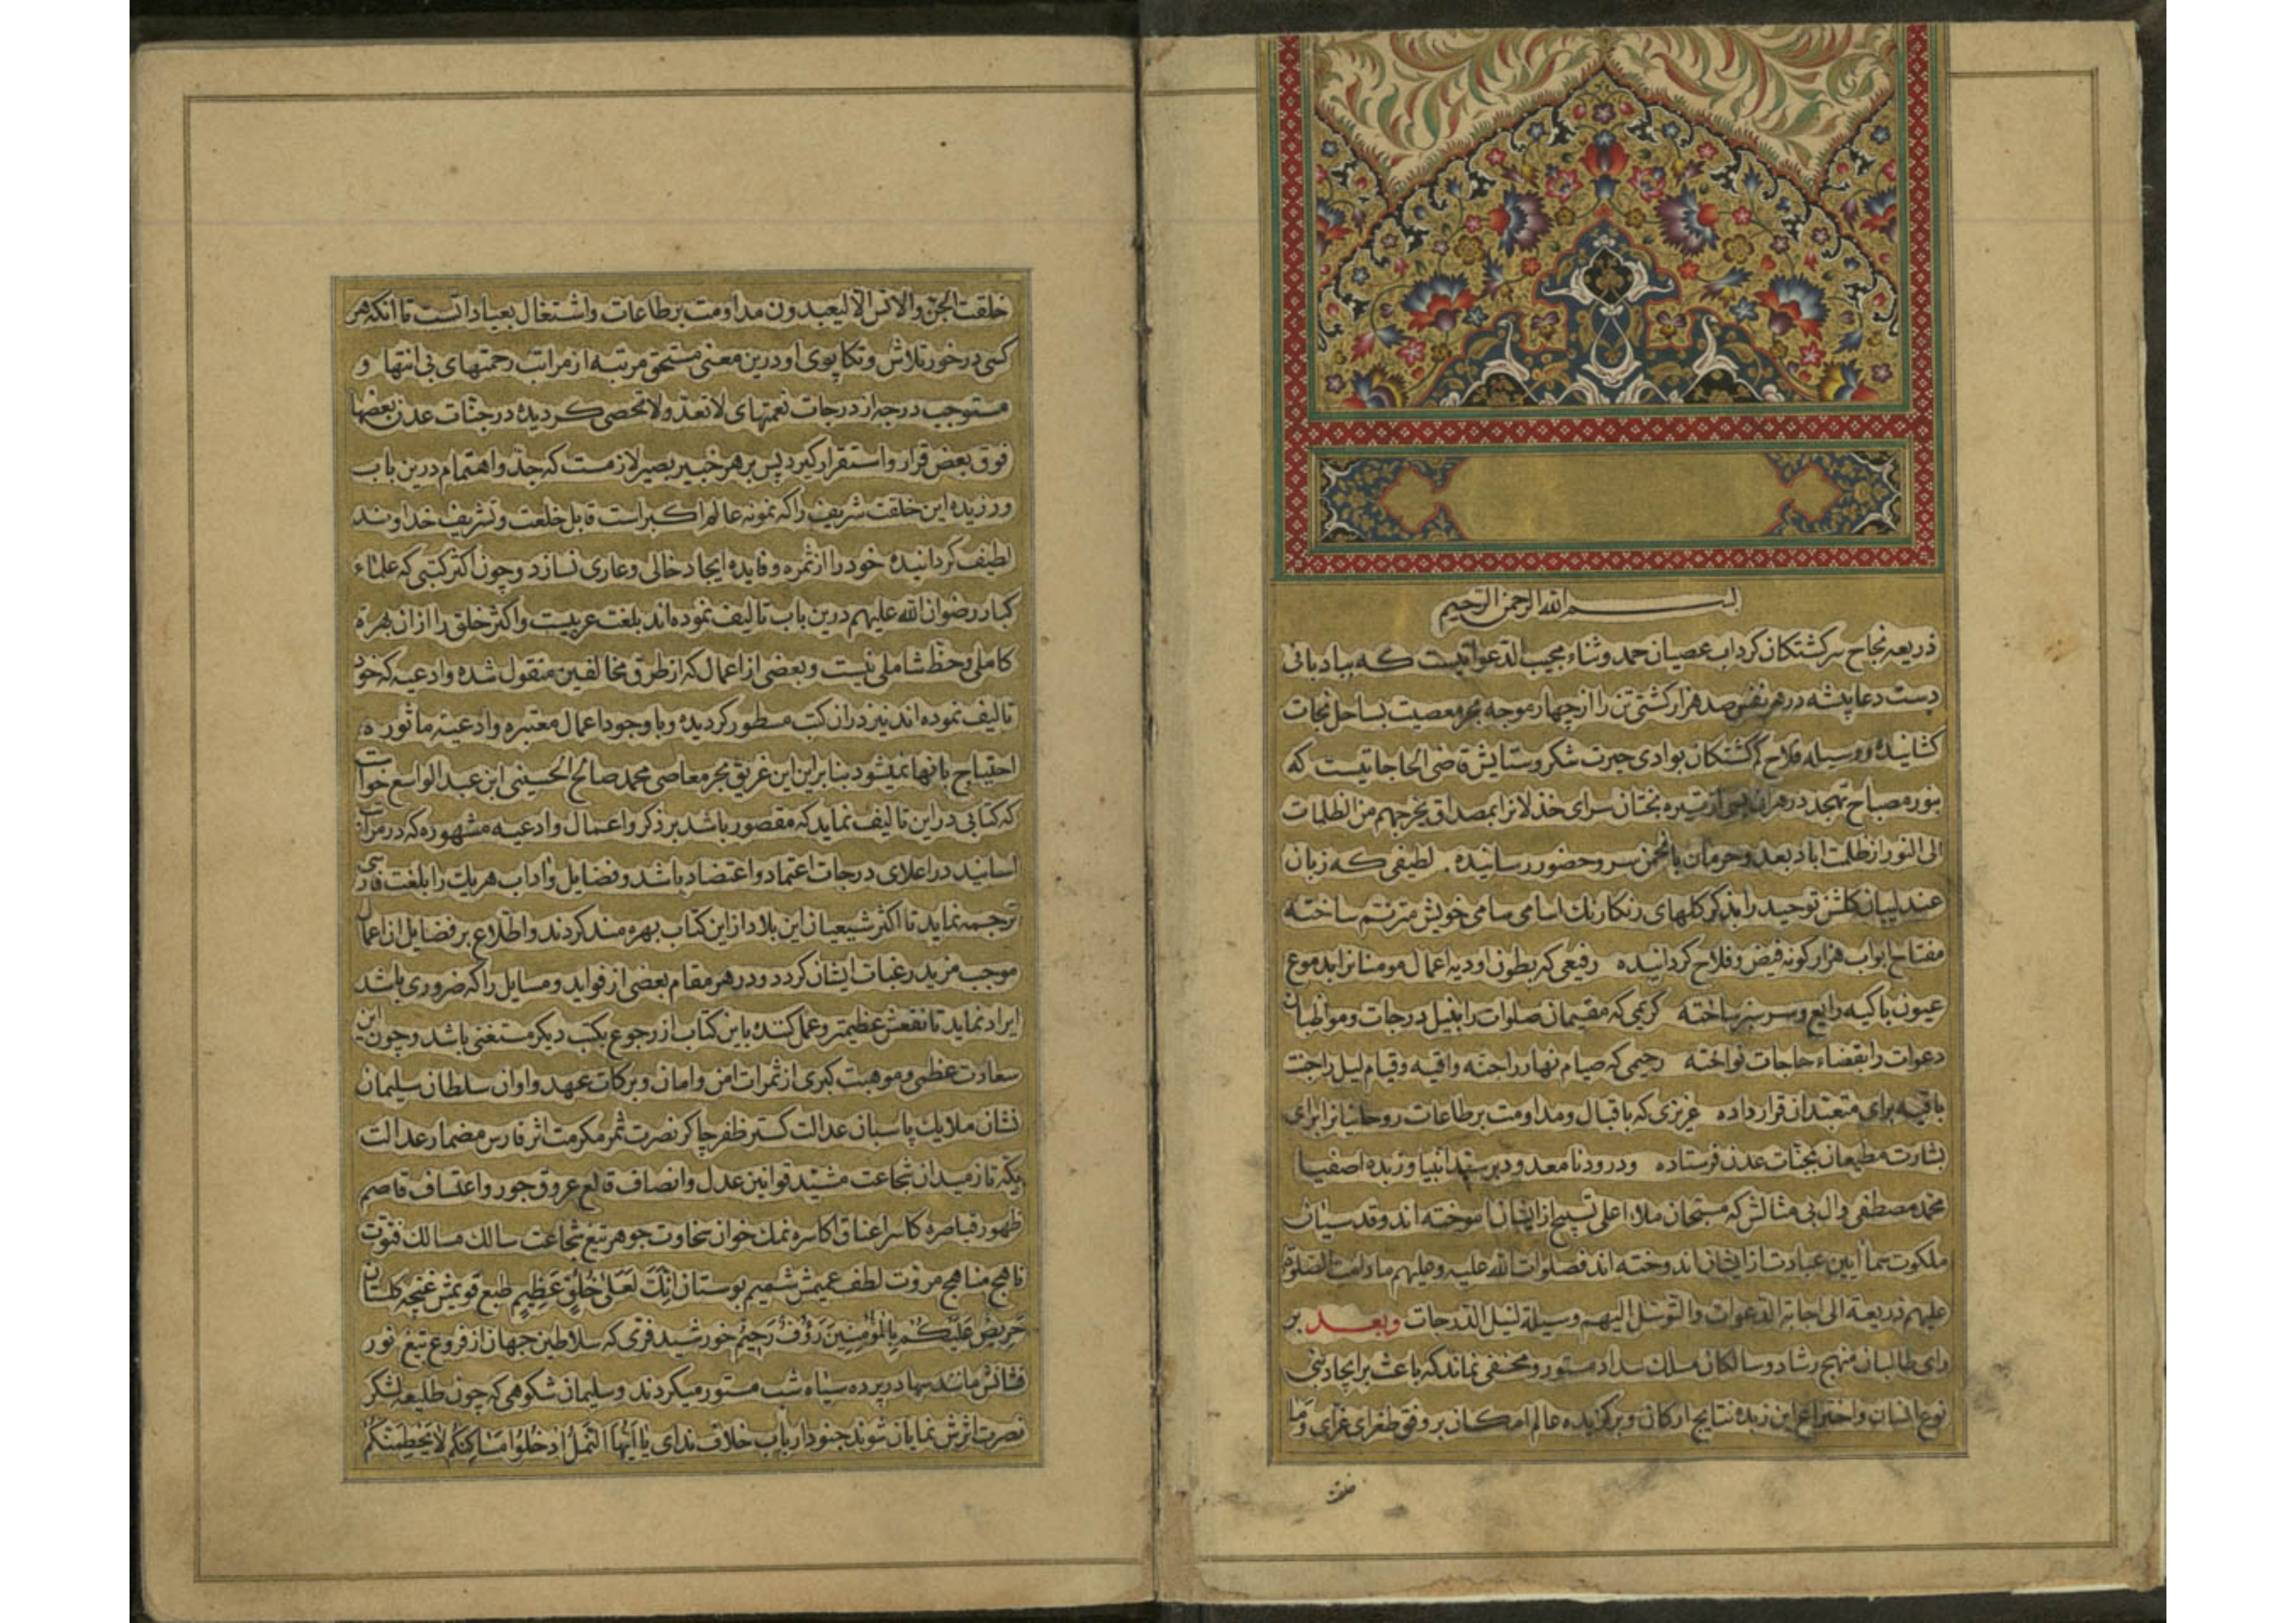 بسم الله الرحمن الرحیم
ذریعه نجاح سرکشتکان کرداب عصیان حمد و ثناء مجیب الدعواتیست که بیادبانی
دست دعا پیشه در هر نفس صد هزار کشتی تن را از چهار موجه بحر معصیت بساحل نجات
کشانیده و وسیله فلاح کم کشتکان بوادی حیرت شکر و ستایش قاضی الحاجاتیست که
بنور مصباح تهجد در هر تیره بختان سرای خذلانرا بمصداق یخرجهم من الظلمات
الی النور از ظلمت اباد بعد و حرمان بانجمن سرور و حضور رسانیده لطیفی که زبان
عندلیبان کلشن توحید را بذکر کلهای رنکارنک اسامی سامی خویش مترنم ساخته
مفتاح ابواب هزار کونه فیض و فلاح کردانیده رفیعی که بطون اودیه اعمال مومنانرا بدموع
عیون باکیه رایع و سرسبز ساخته کریمی که مقیمان صلوات را بنیل درجات و مواظبان
دعوات را بقضاء حاجات نواخته رحیمی که صیام نهار را جنه واقیه و قیام لیل را جنت
باقیه برای متعبدان قرار داده عزیزی که باقبال و مداومت بر طاعات روحانیانرا برای
بشارت مطیعان بجنات عدن فرستاده و درود نامعدود بر سید انبیا و زبده اصفیا
محمد مصطفی و ال بی مثالش که مسبحان ملاء اعلی تسبیح از ایشان اموخته اند و قدسیان
ملکوت سما ایین عبادت از ایشان اندوخته اند فصلوات الله علیه و علیهم مادامت الصلوة
علیهم ذریعة الی اجابة الدعوات و التوسل الیهم وسیلة لنیل الدرجات وبعد بر
رای طالبان منهج رشاد و سالکان مسلک سداد مستور و مخفی نماند که باعث بر ایجاد بنی
نوع انسان و اختراع این زبده نتایج ارکان و برکزیده عالم امکان بر وفق طغرای غرای و ما
خلقت
خلقت الجن و الانس الا لیعبدون مداومت بر طاعات و اشتغال بعباداتست تا انکه هر
کسی در خور تلاش و تکاپوی او درین معنی مستحق مرتبه از مراتب رحمتهای بی انتها و
مستوجب درجه از درجات نعمتهای لا تعد و لا تحصی کردیده در جنات عدن بعضها
فوق بعض قرار و استقرار کیرد پس بر هر خبیر بصیر لازمست که جد و اهتمام درین باب
ورزیده این خلقت شریف را که نمونه عالم اکبر است قابل خلعت و تشریف خداوند
لطیف کردانیده خود را از ثمره و فایده ایجاد خالی و عاری نسازد و چون اکثر کتبی که علماء
کبار رضوان الله علیهم درین باب تالیف نموده اند بلغت عربیست و اکثر خلق را از ان بهره
کاملی و حظ شاملی نیست و بعضی از اعمال که از طرق مخالفین منقول شده و ادعیه که خود
تالیف نموده اند نیز در ان کتب مسطور کردیده و با وجود اعمال معتبره و ادعیه ماثوره
احتیاج بانها نمیشود بنا براین این غریق بحر معاصی محمد صالح الحسینی ابن عبد الواسع خواست
که کتابی در این تالیف نماید که مقصور باشد بر ذکر و اعمال و ادعیه مشهوره که در مراتب
اسانید در اعلای درجات اعتماد و اعتضاد باشد و فضایل و اداب هر یک را بلغت فارسی
ترجمه نماید تا اکثر شیعیان این بلاد از این کتاب بهره مند کردند و اطلاع بر فضایل ان اعمال
موجب مزید رغبات ایشان کردد و در هر مقام بعضی از فواید و مسایل را که ضروری باشد
ایراد نماید تا نفعش عظیمتر و عمل کننده باین کتاب از رجوع بکتب دیکر مستغنی باشد و چون این
سعادت عظمی و موهبت کبری از ثمرات امن و امان و برکات عهد و اوان سلطان سلیمان
نشان ملایک پاسبان عدالت کستر ظفر چاکر نصرت ثمر مکرمت اثر فارس مضمار عدالت
یکه تاز میدان شجاعت مشید قوانین عدل و انصاف قالع عروق جور و اعتساف قاصم
ظهور قیاصره کاسر اعناق اکاسره نمک خوان سخاوت جوهر تیغ شجاعت سالک مسالک فتوت
ناهج مناهج مروت لطف عمیمش شمیم بوستان انک لعلی خلق عظیم طبع قویمش غنچه کلستان
حریص علیکم بالمؤمنین رؤف رحیم خورشید فری که سلاطین جهان از فروغ تیغ نور
فشانش مانند سها در پرده سیاه شب مستور میکردند و سلیمان شکوهی که چون طلیعه لشکر
نصرت اثرش نمایان شوند جنود ارباب خلاف ندای یا ایها النمل ادخلوا مساکنکم لا یحطمنکم